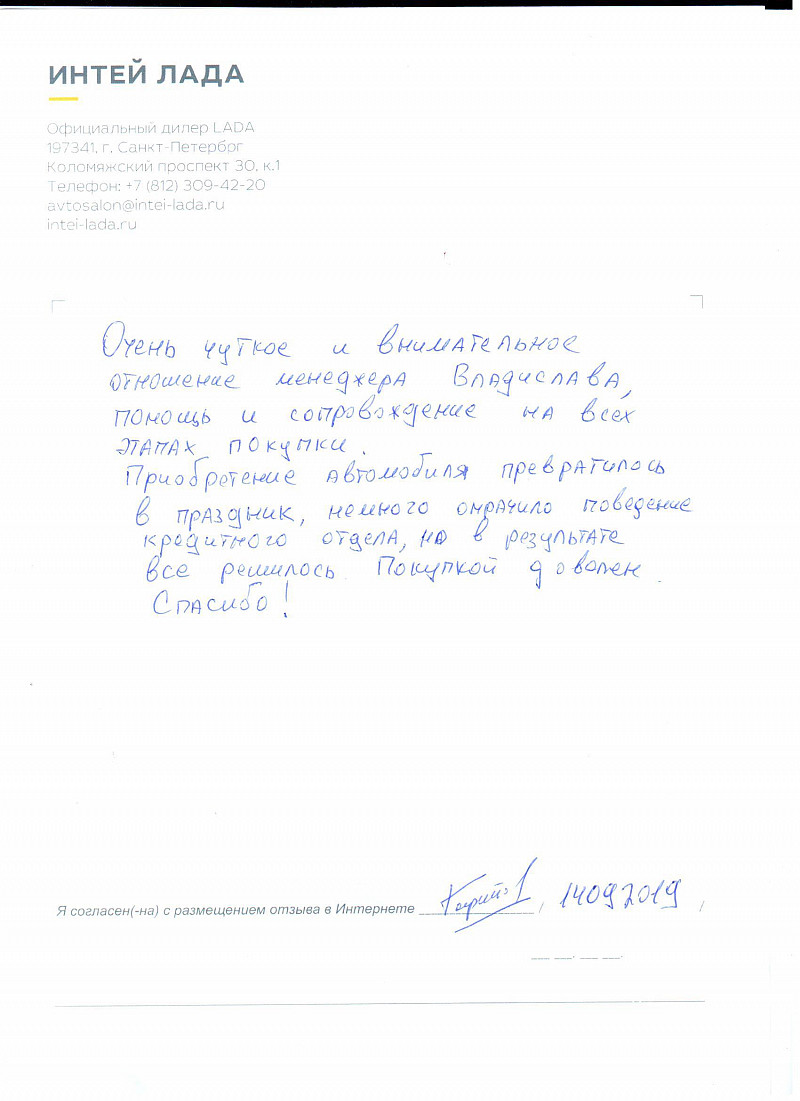 ИНТЕЙ ЛАДА
Официальный дилер LADA
197341, г. Санкт-Петербог
Коломяжский проспект 30, к.1
Телефон: +7 (812) 309-42-20
avtosalon@intei-lada.ru
intei-lada.ru
Очень чуткое и внимательное
отношение менеджера Владислава,
помощь и сопровождение на всех
этапах покупки.
Приобретение автомобиля превратилось
в праздник, немного омрачило поведение
кредитного отдела, но в результате
все решилось. Покупкой доволен.
Спасибо!
Я согласен(-на) с размещением отзыва в Интернете / 14092019 /